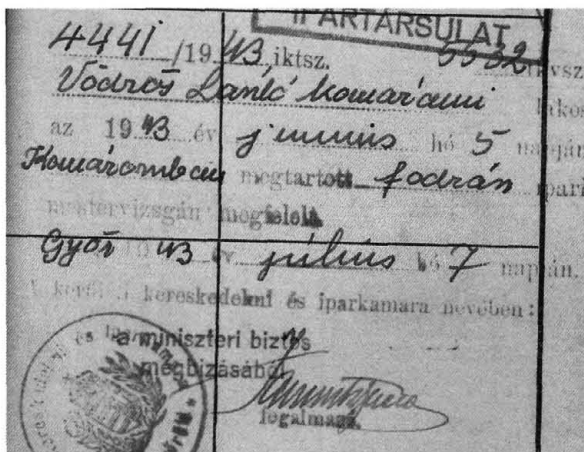 IPARTÁRSULAT
4441/1943 iktsz. 5532
Vödrös László komáromi lakos
az 1943 év junius hó 5 napján
Komáromban megtartott fodrász ipari
mestervizsgán megfelelt.
Győr 1943 év július hó 7 napján.
A kerületi kereskedelmi és iparkamara nevében:
a miniszteri biztos
megbízásából
fogalmazó.